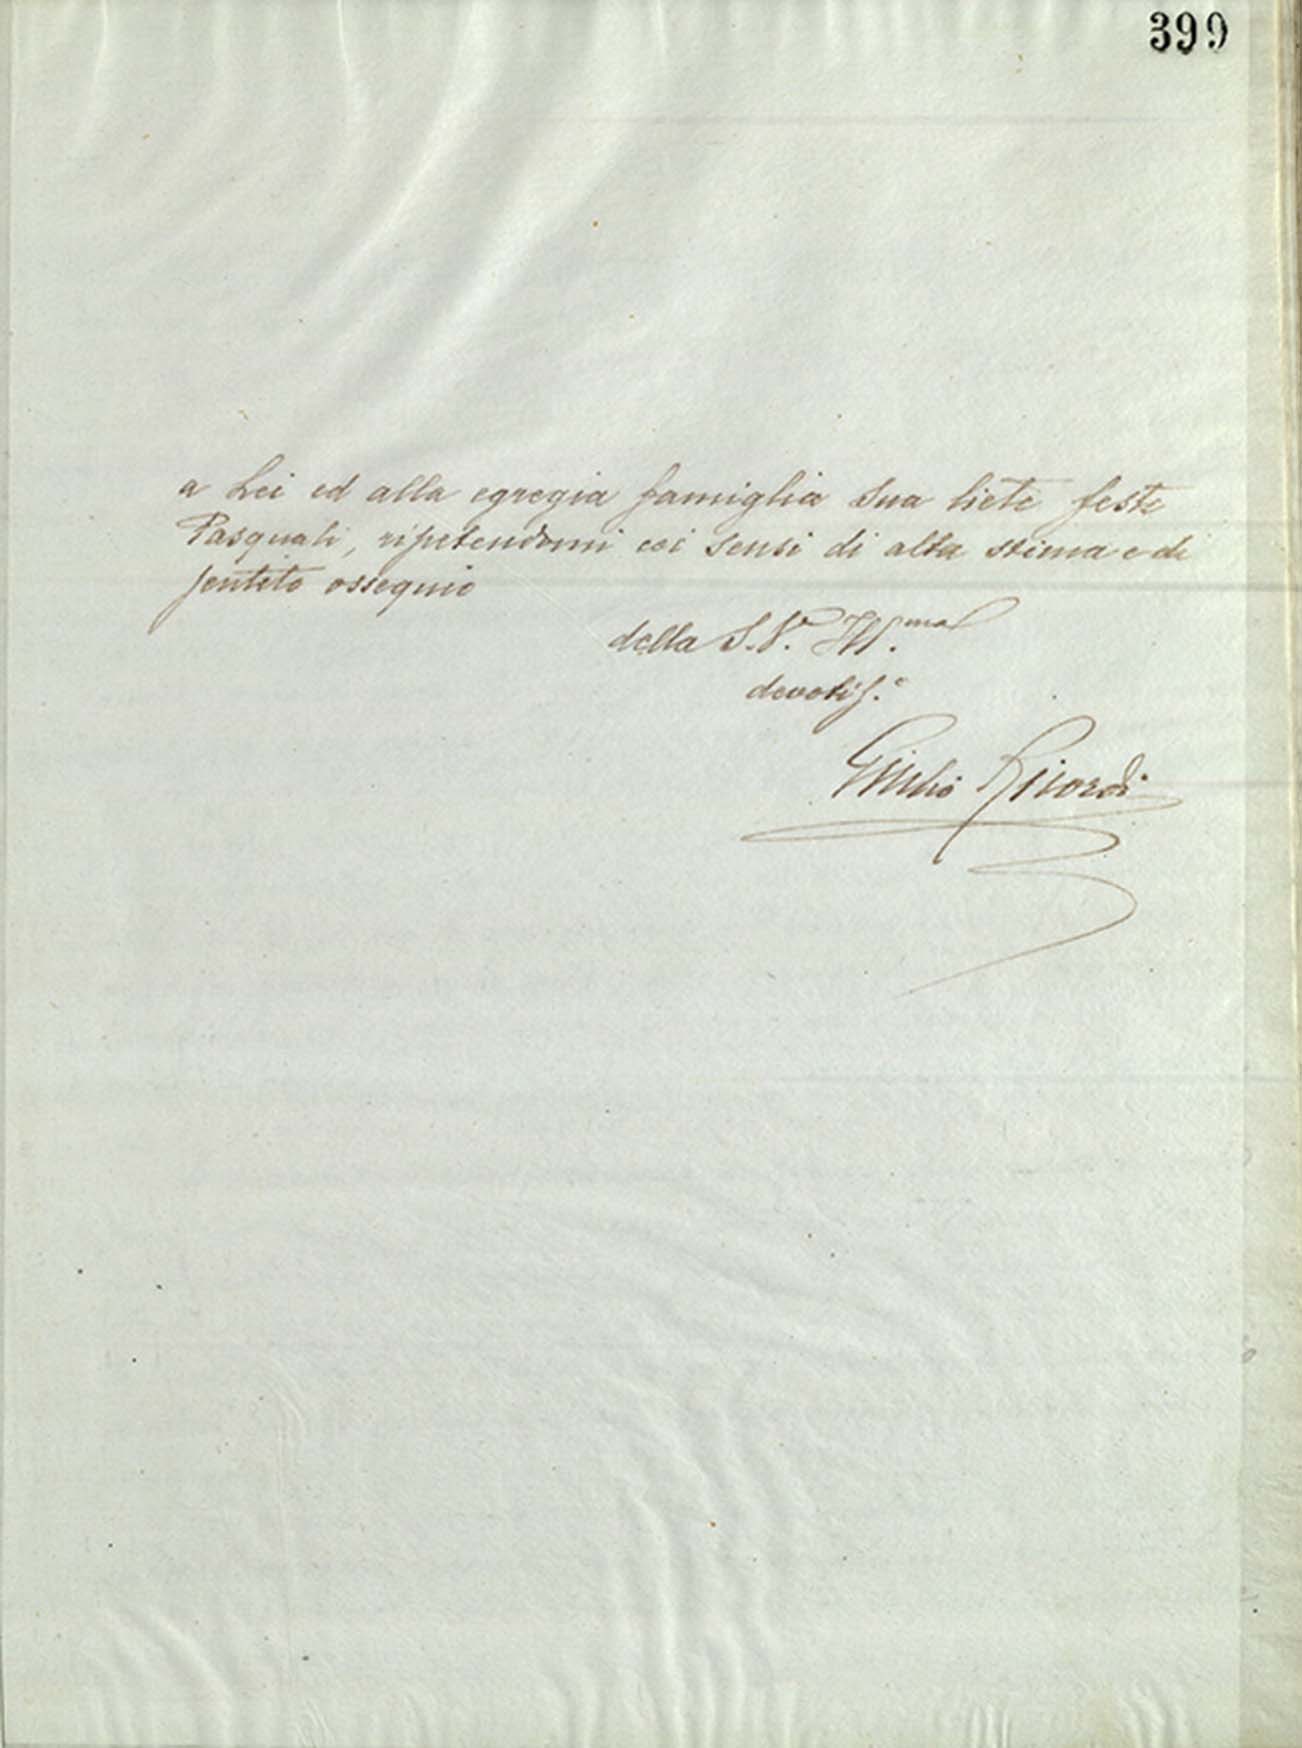 399
a Lei ed alla egregia famiglia Sua liete feste
Pasquali, ripetendomi coi sensi di alta stima e di
sentito ossequio
della S.V. Ill.ma
devotiss.e
Giulio Ricordi